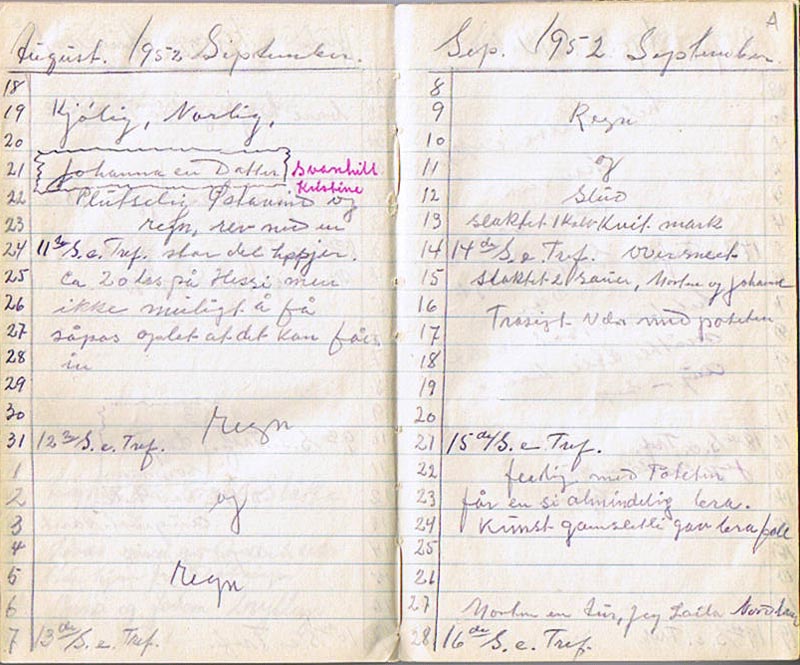 August. 1952 September.
18
19 Kjølig, Norlig,
20
21 Johanna en Datter Svanhill
Kristine
22 Plutselig Østavind og
23 regn, rev ned en
24 11te S. e. Tref. stor del hesjer.
25 Ca 20 las på Hessi men
26 ikke muligt å få
27 såpas oplet at det kan fåes
28 in
29
30 regn
31 12te S. e. Tref.
1
2 og
3
4
5 regn
6
7 13de S. e. Tref.
Sep. 1952 September. A
8
9 Regn
10
11 og
12 Sludd
13 slaktet 1 Kalv Kvit mark
14 14de S. e. Tref. over sneet
15 slaktet 2 sauer, Morten og Johanne
16
17 Trasigt vær med poteten
18
19
20
21 15de S. e. Tref.
22 ferdig med Poteten
23 får en si almindelig bra.
24 Kunst gav bra
25
26
27 Morten en tur, Jeg Laila
28 16de S. e. Tref.